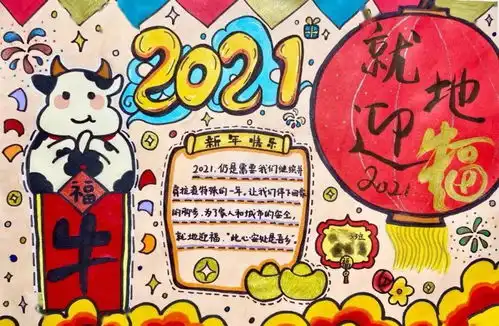 2021
新年快乐
2021.仍是需要我们继续并
肩抗疫特殊的一年,让我们停下回家
的脚步,为了家人和城市的安全,
就地迎福,"此心安处是吾乡"
就地
迎福
2021
福
牛